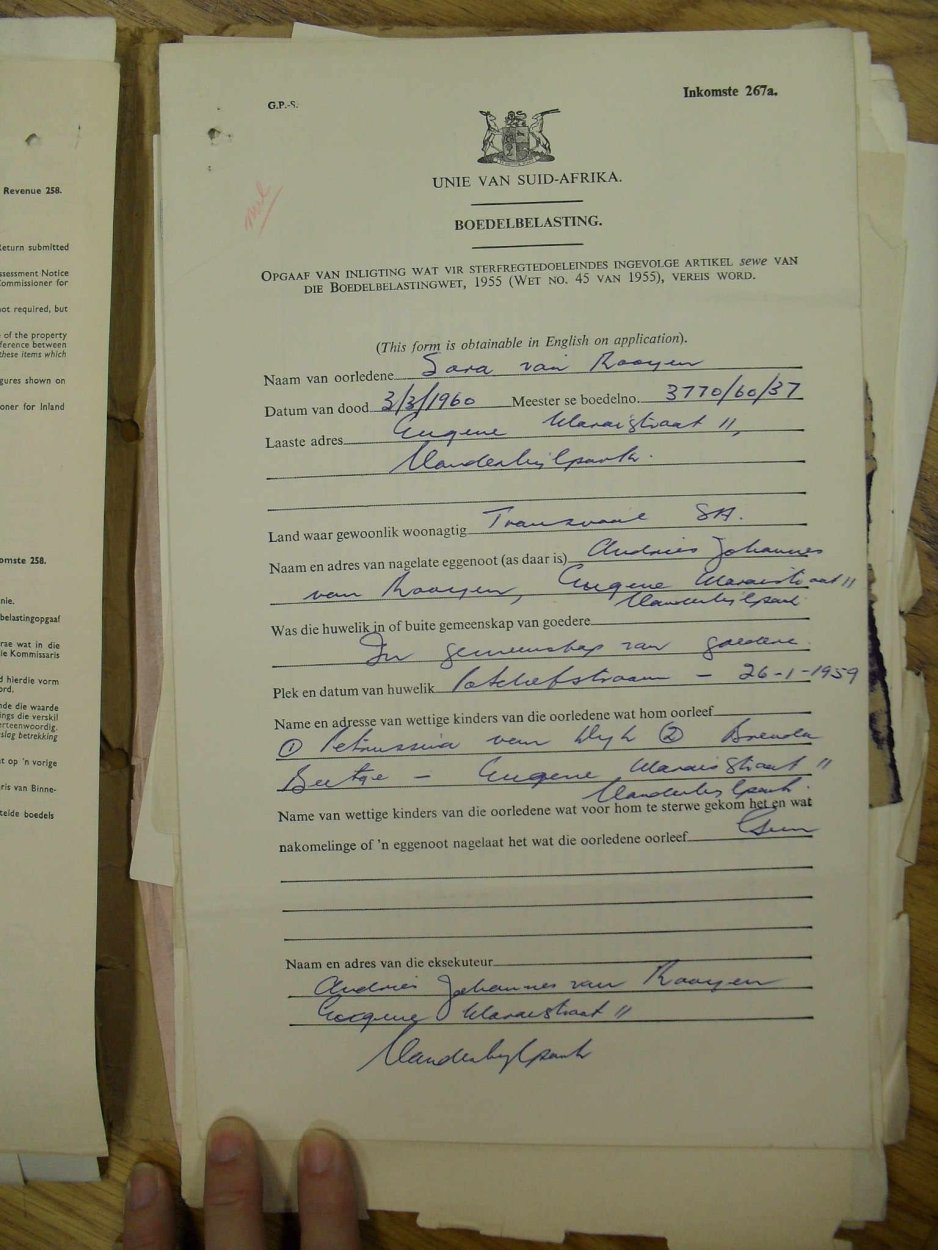 Revenue 258.
Return submitted
ssessment Notice
Commissioner for
not required, but
e of the property
fference between
these items which
gures shown on
oner for Inland
omste 258.
nie.
belastingopgaaf
rae wat in die
ie Kommissaris
d hierdie vorm
ord.
nde die waarde
ings die verskil
erteenwoordig.
slag betrekking
t op 'n vorige
ris van Binne-
telde boedels
G.P.-S.
Inkomste 267a.
UNIE VAN SUID-AFRIKA.
BOEDELBELASTING.
OPGAAF VAN INLIGTING WAT VIR STERFREGTEDOELEINDES INGEVOLGE ARTIKEL sewe VAN
DIE BOEDELBELASTINGWET, 1955 (WET NO. 45 VAN 1955), VEREIS WORD.
(This form is obtainable in English on application).
Naam van oorledene Sara van Rooyen
Datum van dood 3/3/1960 Meester se boedelno. 3770/60/37
Laaste adres Eugene Maraisstraat 11,
Vanderbijlpark.
Land waar gewoonlik woonagtig Transvaal SA.
Naam en adres van nagelate eggenoot (as daar is) Andries Johannes
van Rooyen, Eugene Maraisstraat 11
Vanderbijlpark.
Was die huwelik in of buite gemeenskap van goedere
In gemeenskap van goedere.
Plek en datum van huwelik Potchefstroom - 26-1-1959
Name en adresse van wettige kinders van die oorledene wat hom oorleef
① Petrussina van Wyk ② Brenda
Beetge - Eugene Maraisstraat 11
Vanderbijlpark.
Name van wettige kinders van die oorledene wat voor hom te sterwe gekom het en wat
nakomelinge of 'n eggenoot nagelaat het wat die oorledene oorleef Geen
Naam en adres van die eksekuteur
Andries Johannes van Rooyen
Eugene Maraisstraat 11
Vanderbijlpark